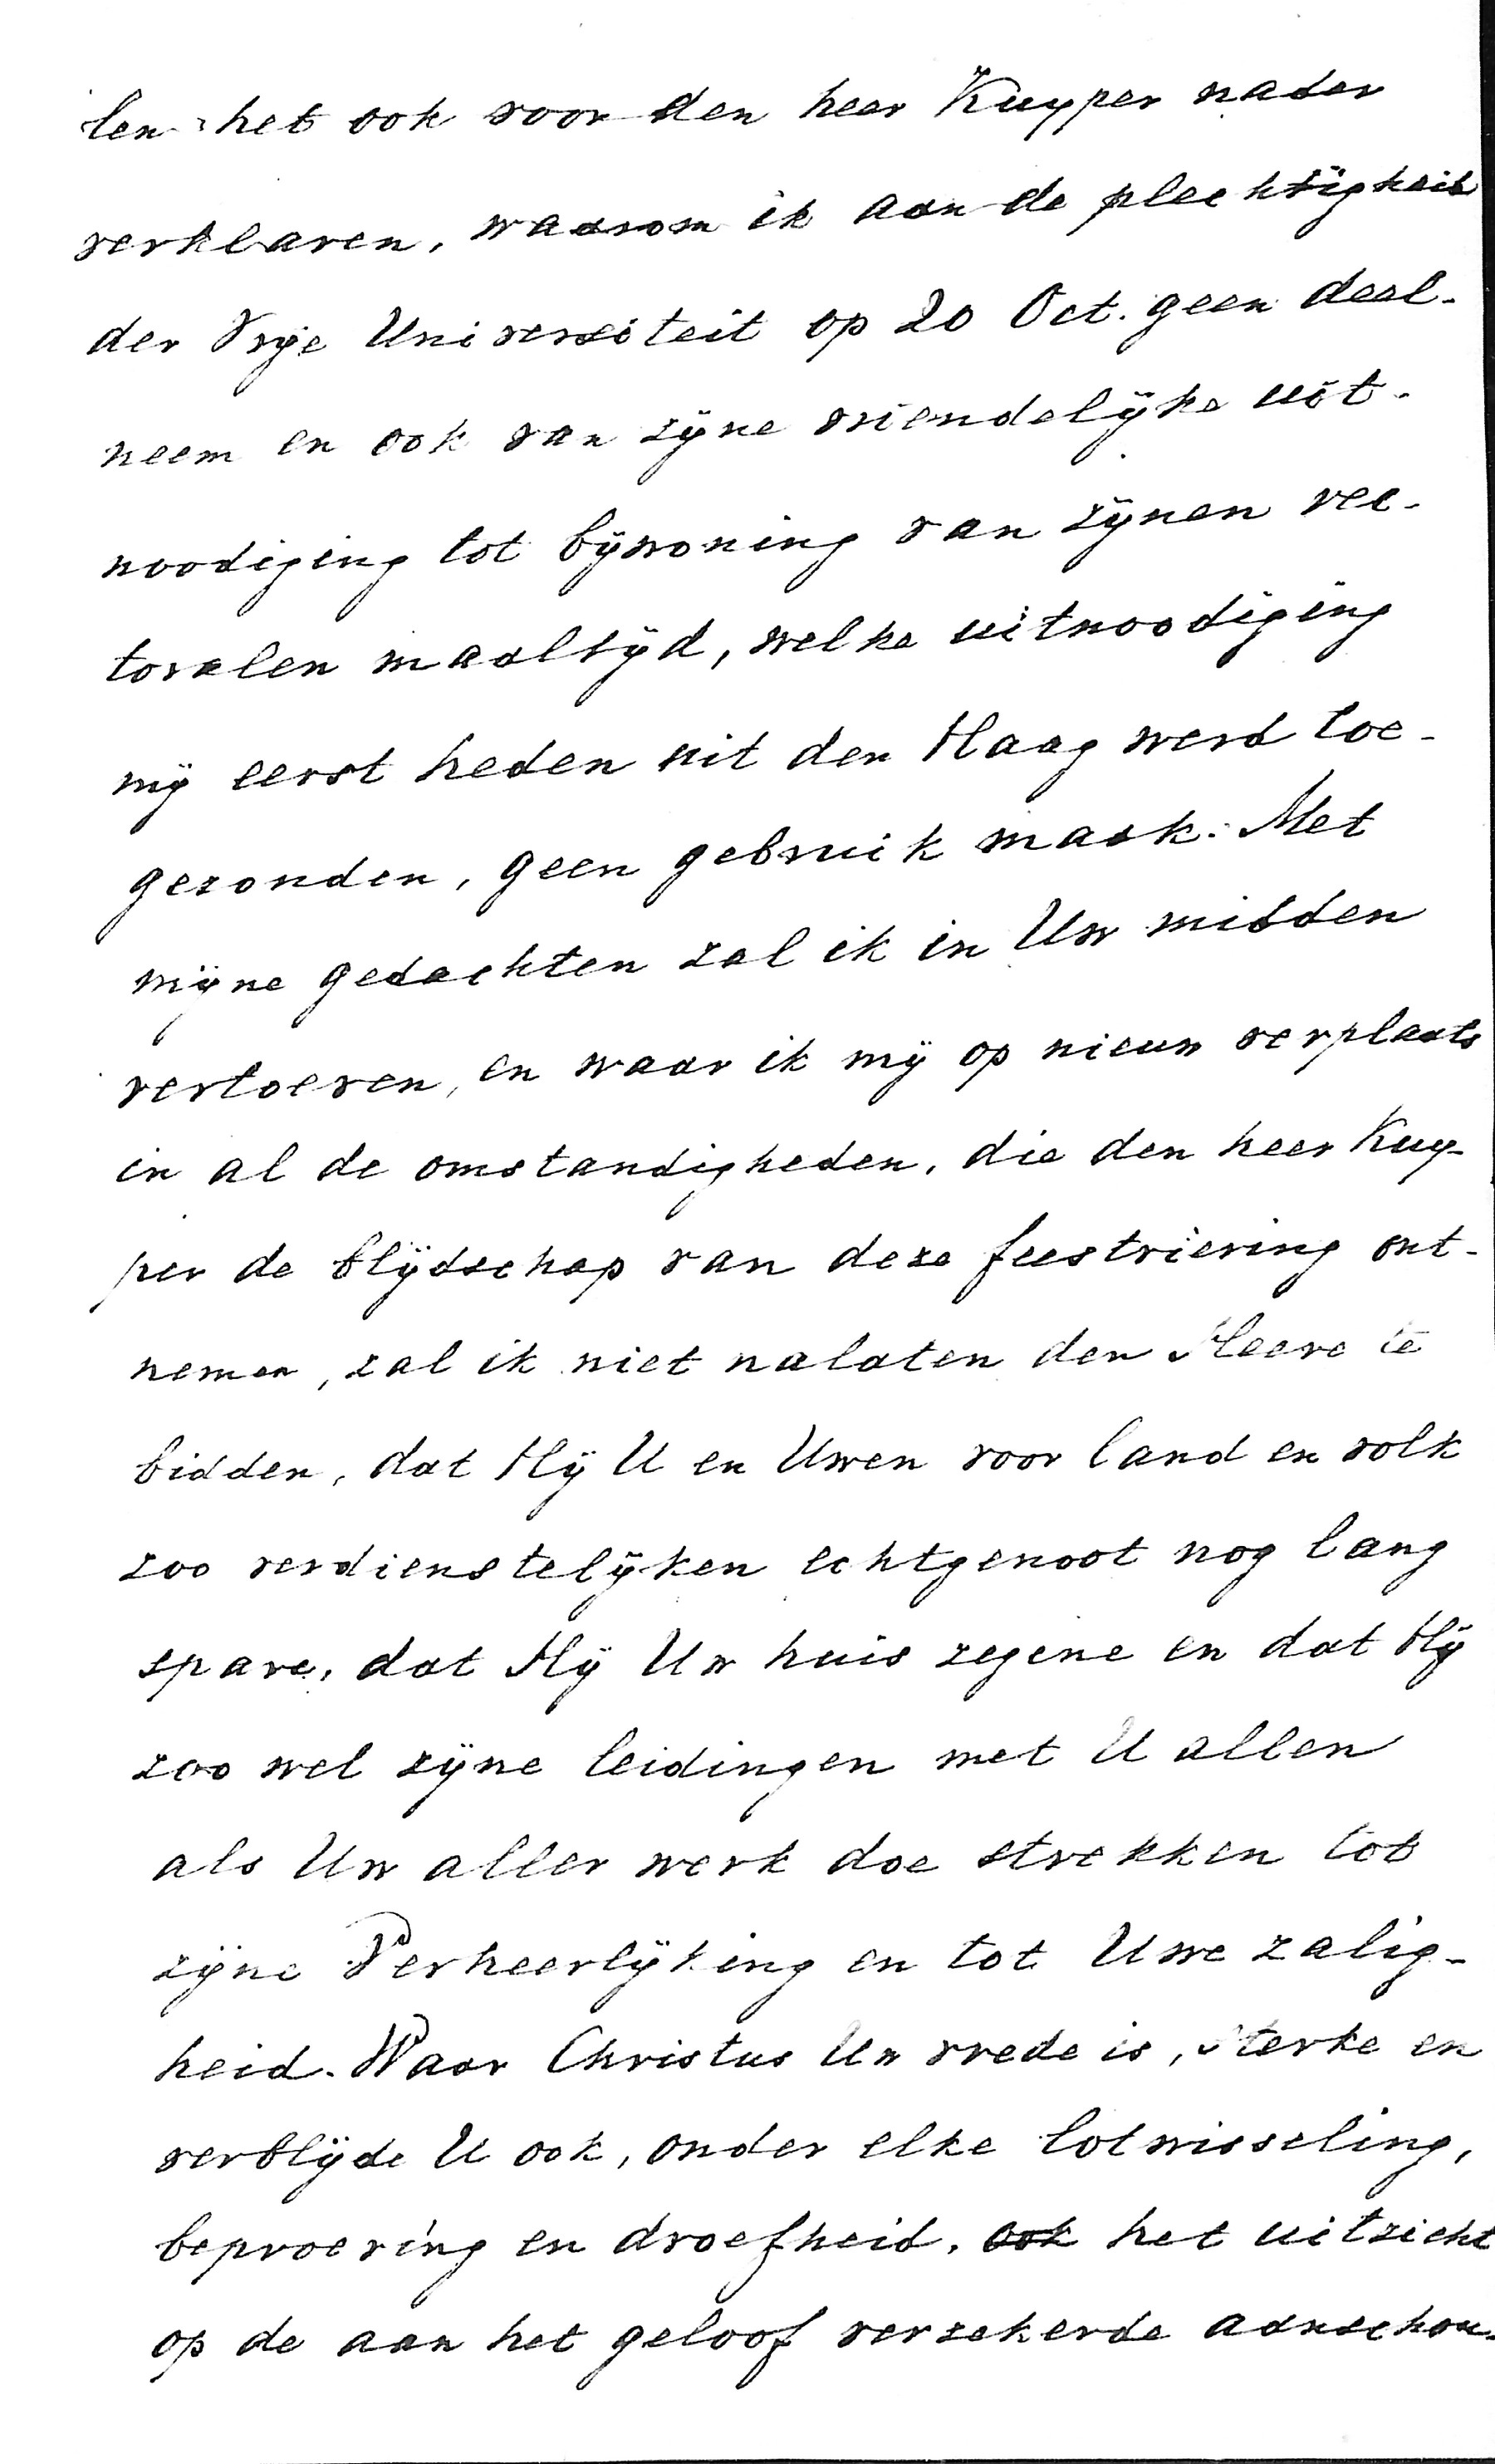 len het ook voor den heer Kuyper nader
verklaren, waarom ik aan de plechtigheid
der Vrije Universiteit op 20 Oct. geen deel-
neem en ook van zijne vriendelijke uit-
noodiging tot bijwoning van zijnen rec-
toralen maaltijd, welke uitnoodiging
mij eerst heden uit den Haag werd toe-
gezonden, geen gebruik maak. Met
mijne gedachten zal ik in Uw midden
vertoeven, en waar ik mij op nieuw verplaats
in al de omstandigheden, die den heer Kuy-
per de blijdschap van deze feestviering ont-
nemen, zal ik niet nalaten den Heere te
bidden, dat Hij U en Uwen voor land en volk
zoo verdienstelijken echtgenoot nog lang
spare, dat Hij Uw huis zegene en dat Hij
zoo wel zijne leidingen met U allen
als Uw aller werk doe strekken tot
zijne Verheerlijking en tot Uwe zalig-
heid. Waar Christus Uw vrede is, sterke en
verblijde U ook, onder elke lotwisseling,
beproeving en droefheid, ook het uitzicht
op de aan het geloof verzekerde aanschou-